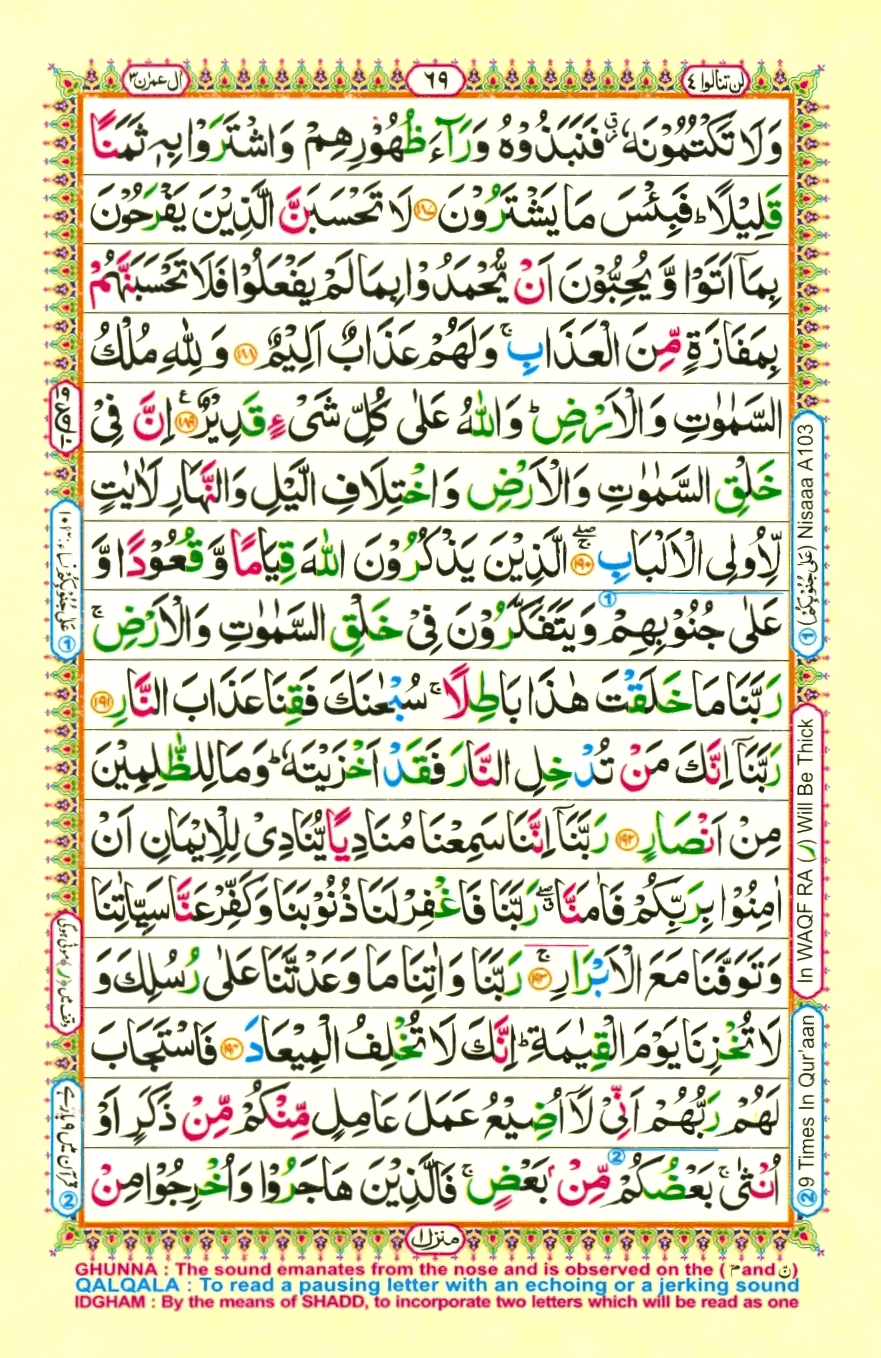 لن تنالوا ٤
٦٩
اٰل عمرٰن ٣
وَلَا تَكْتُمُوْنَهٗ ۫ فَنَبَذُوْهُ وَرَآءَ ظُهُوْرِهِمْ وَاشْتَرَوْا بِهٖ ثَمَنًا
قَلِيْلًا ؕ فَبِئْسَ مَا يَشْتَرُوْنَ ۝۱۸۷ لَا تَحْسَبَنَّ الَّذِيْنَ يَفْرَحُوْنَ
بِمَاۤ اَتَوْا وَّ يُحِبُّوْنَ اَنْ يُّحْمَدُوْا بِمَا لَمْ يَفْعَلُوْا فَلَا تَحْسَبَنَّهُمْ
بِمَفَازَةٍ مِّنَ الْعَذَابِ ۚ وَلَهُمْ عَذَابٌ اَلِيْمٌ ۝۱۸۸ وَ لِلّٰهِ مُلْكُ
السَّمٰوٰتِ وَ الْاَرْضِ ؕ وَاللّٰهُ عَلٰى كُلِّ شَىْءٍ قَدِيْرٌ ۝۱۸۹ اِنَّ فِىْ
خَلْقِ السَّمٰوٰتِ وَالْاَرْضِ وَاخْتِلَافِ الَّيْلِ وَالنَّهَارِ لَاٰيٰتٍ
لِّاُولِى الْاَلْبَابِ ۝۱۹۰ الَّذِيْنَ يَذْكُرُوْنَ اللّٰهَ قِيَامًا وَّ قُعُوْدًا وَّ
عَلٰى جُنُوْبِهِمْ وَيَتَفَكَّرُوْنَ فِىْ خَلْقِ السَّمٰوٰتِ وَالْاَرْضِ ۚ
رَبَّنَا مَا خَلَقْتَ هٰذَا بَاطِلًا ۚ سُبْحٰنَكَ فَقِنَا عَذَابَ النَّارِ ۝۱۹۱
رَبَّنَاۤ اِنَّكَ مَنْ تُدْخِلِ النَّارَ فَقَدْ اَخْزَيْتَهٗ ؕ وَمَا لِلظّٰلِمِيْنَ
مِنْ اَنْصَارٍ ۝۱۹۲ رَبَّنَاۤ اِنَّنَا سَمِعْنَا مُنَادِيًا يُّنَادِىْ لِلْاِيْمَانِ اَنْ
اٰمِنُوْا بِرَبِّكُمْ فَاٰمَنَّا ۖ رَبَّنَا فَاغْفِرْ لَنَا ذُنُوْبَنَا وَكَفِّرْ عَنَّا سَيِّاٰتِنَا
وَتَوَفَّنَا مَعَ الْاَبْرَارِ ۝۱۹۳ رَبَّنَا وَاٰتِنَا مَا وَعَدْتَّنَا عَلٰى رُسُلِكَ وَ
لَا تُخْزِنَا يَوْمَ الْقِيٰمَةِ ؕ اِنَّكَ لَا تُخْلِفُ الْمِيْعَادَ ۝۱۹۴ فَاسْتَجَابَ
لَهُمْ رَبُّهُمْ اَنِّىْ لَاۤ اُضِيْعُ عَمَلَ عَامِلٍ مِّنْكُمْ مِّنْ ذَكَرٍ اَوْ
اُنْثٰى ۚ بَعْضُكُمْ مِّنْۢ بَعْضٍ ۚ فَالَّذِيْنَ هَاجَرُوْا وَاُخْرِجُوْا مِنْ
① (عَلٰى جُنُوْبِكُمْ) Nisaaa A103
In WAQF RA (ر) Will Be Thick
② 9 Times In Qur'aan
وقف میں (ر) موٹی ہوگی
② قرآن میں ۹ بار ہے
منزل ۱
GHUNNA : The sound emanates from the nose and is observed on the ( مّ and نّ )
QALQALA : To read a pausing letter with an echoing or a jerking sound
IDGHAM : By the means of SHADD, to incorporate two letters which will be read as one